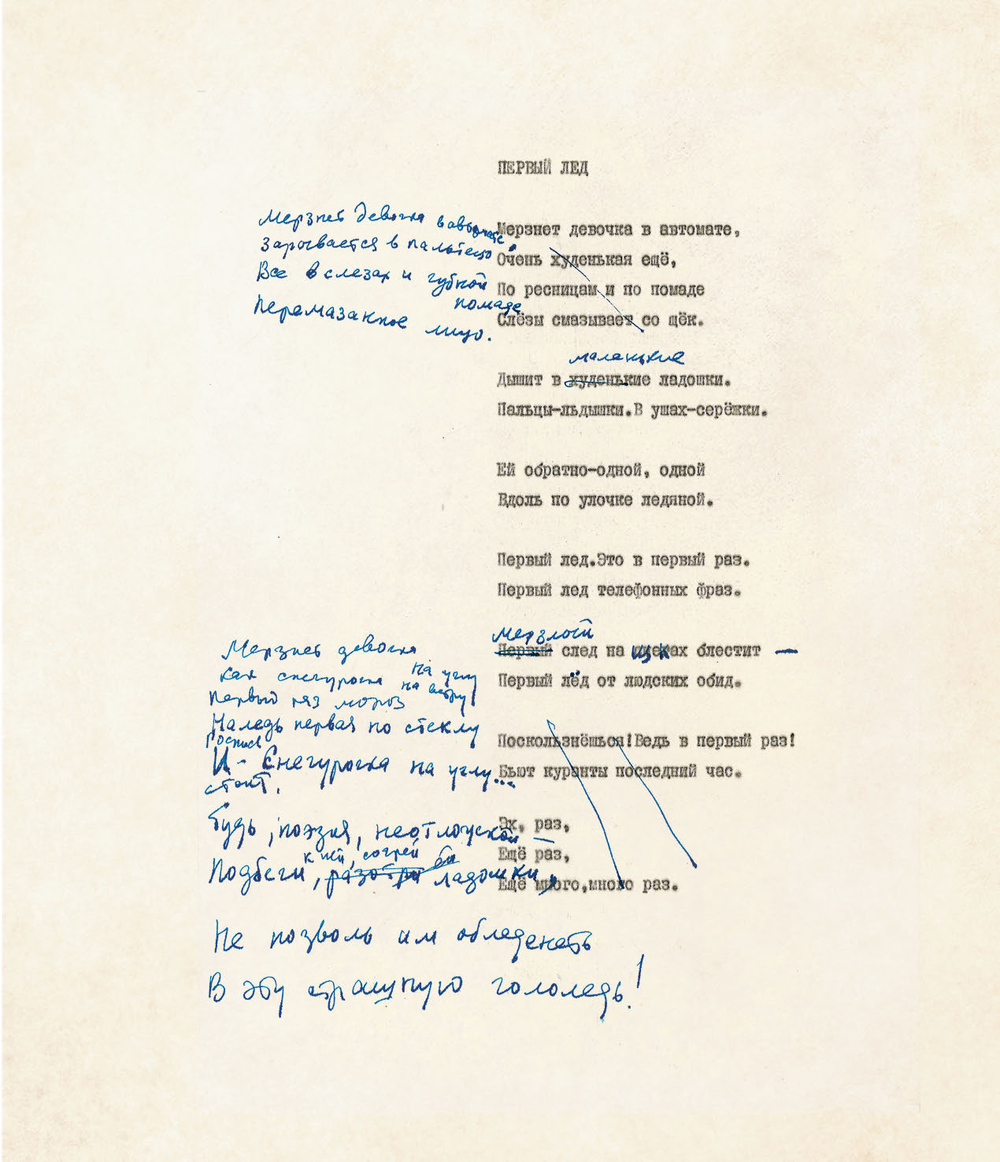 ПЕРВЫЙ ЛЕД
Мерзнет девочка в автомате,
Зарывается в пальтецо.
Все в слезах и губной
помаде
Перемазанное лицо.
Мерзнет девочка в автомате,
Очень худенькая ещё,
По ресницам и по помаде
Слёзы смазывает со щёк.
маленькие
Дышит в худенькие ладошки.
Пальцы-льдышки.В ушах-серёжки.
Ей обратно-одной, одной
Вдоль по улочке ледяной.
Первый лед.Это в первый раз.
Первый лед телефонных фраз.
Мерзлый
Первый след на щеках блестит —
Первый лёд от людских обид.
Поскользнёшься!Ведь в первый раз!
Бьют куранты последний час.
Эх, раз,
Ещё раз,
Ещё много,много раз.
Мерзнет девочка
как снегурочка на углу
Первый раз мороз на
Наледь первая по стеклу
И - Снегурочка на углу...
стоит.
Будь, поэзия, неотложкой —
к ней, согрей
Подбеги, разотри ладошки,
Не позволь им обледенеть
В эту страшную гололедь!